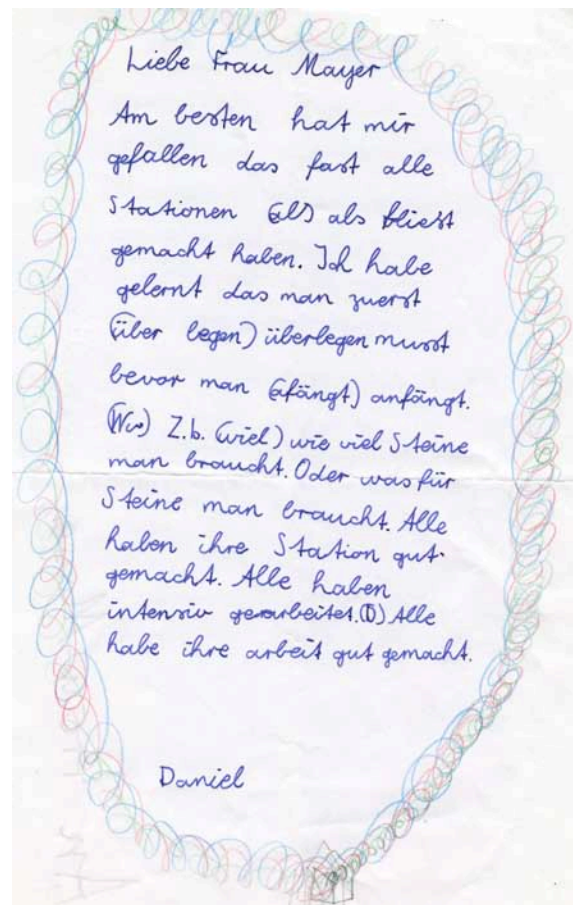 Liebe Frau Mayer
Am besten hat mir
gefallen das fast alle
Stationen als
gemacht haben. Ich habe
gelernt das man zuerst
(über legen) überlegen musst
bevor man (afängt) anfängt.
Z.b. (viel) wie viel Steine
man braucht. Oder was für
Steine man braucht. Alle
haben ihre Station gut
gemacht. Alle haben
intensiv gearbeitet. Alle
habe ihre arbeit gut gemacht.
Daniel